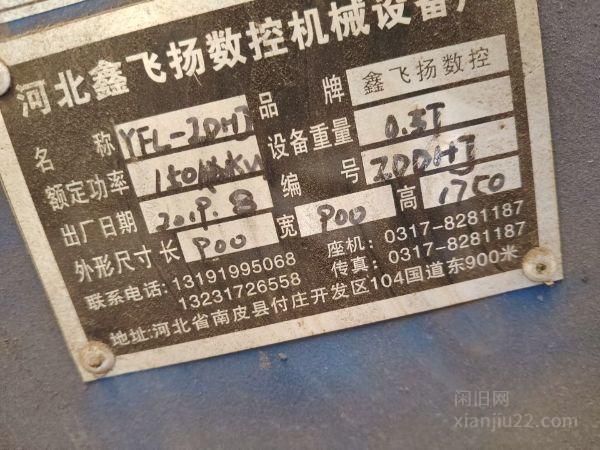 河北鑫飞扬数控机械设备厂
名 称 YFL-ZDHJ 品 牌 鑫飞扬数控
额定功率 150 KW 设备重量 0.3T
出厂日期 2019.8 编 号 ZDDHJ
外形尺寸 长 900 宽 900 高 1750
联系电话: 13191995068 座机: 0317-8281187
13231726558 传真: 0317-8281187
地址:河北省南皮县付庄开发区104国道东900米
闲旧网
xianjiu22.com